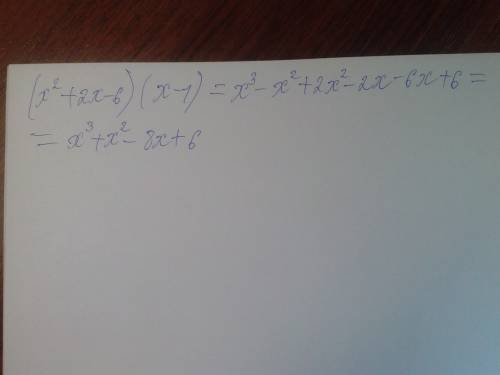 (x²+2x-6)(x-1)=x³-x²+2x²-2x-6x+6=
=x³+x²-8x+6